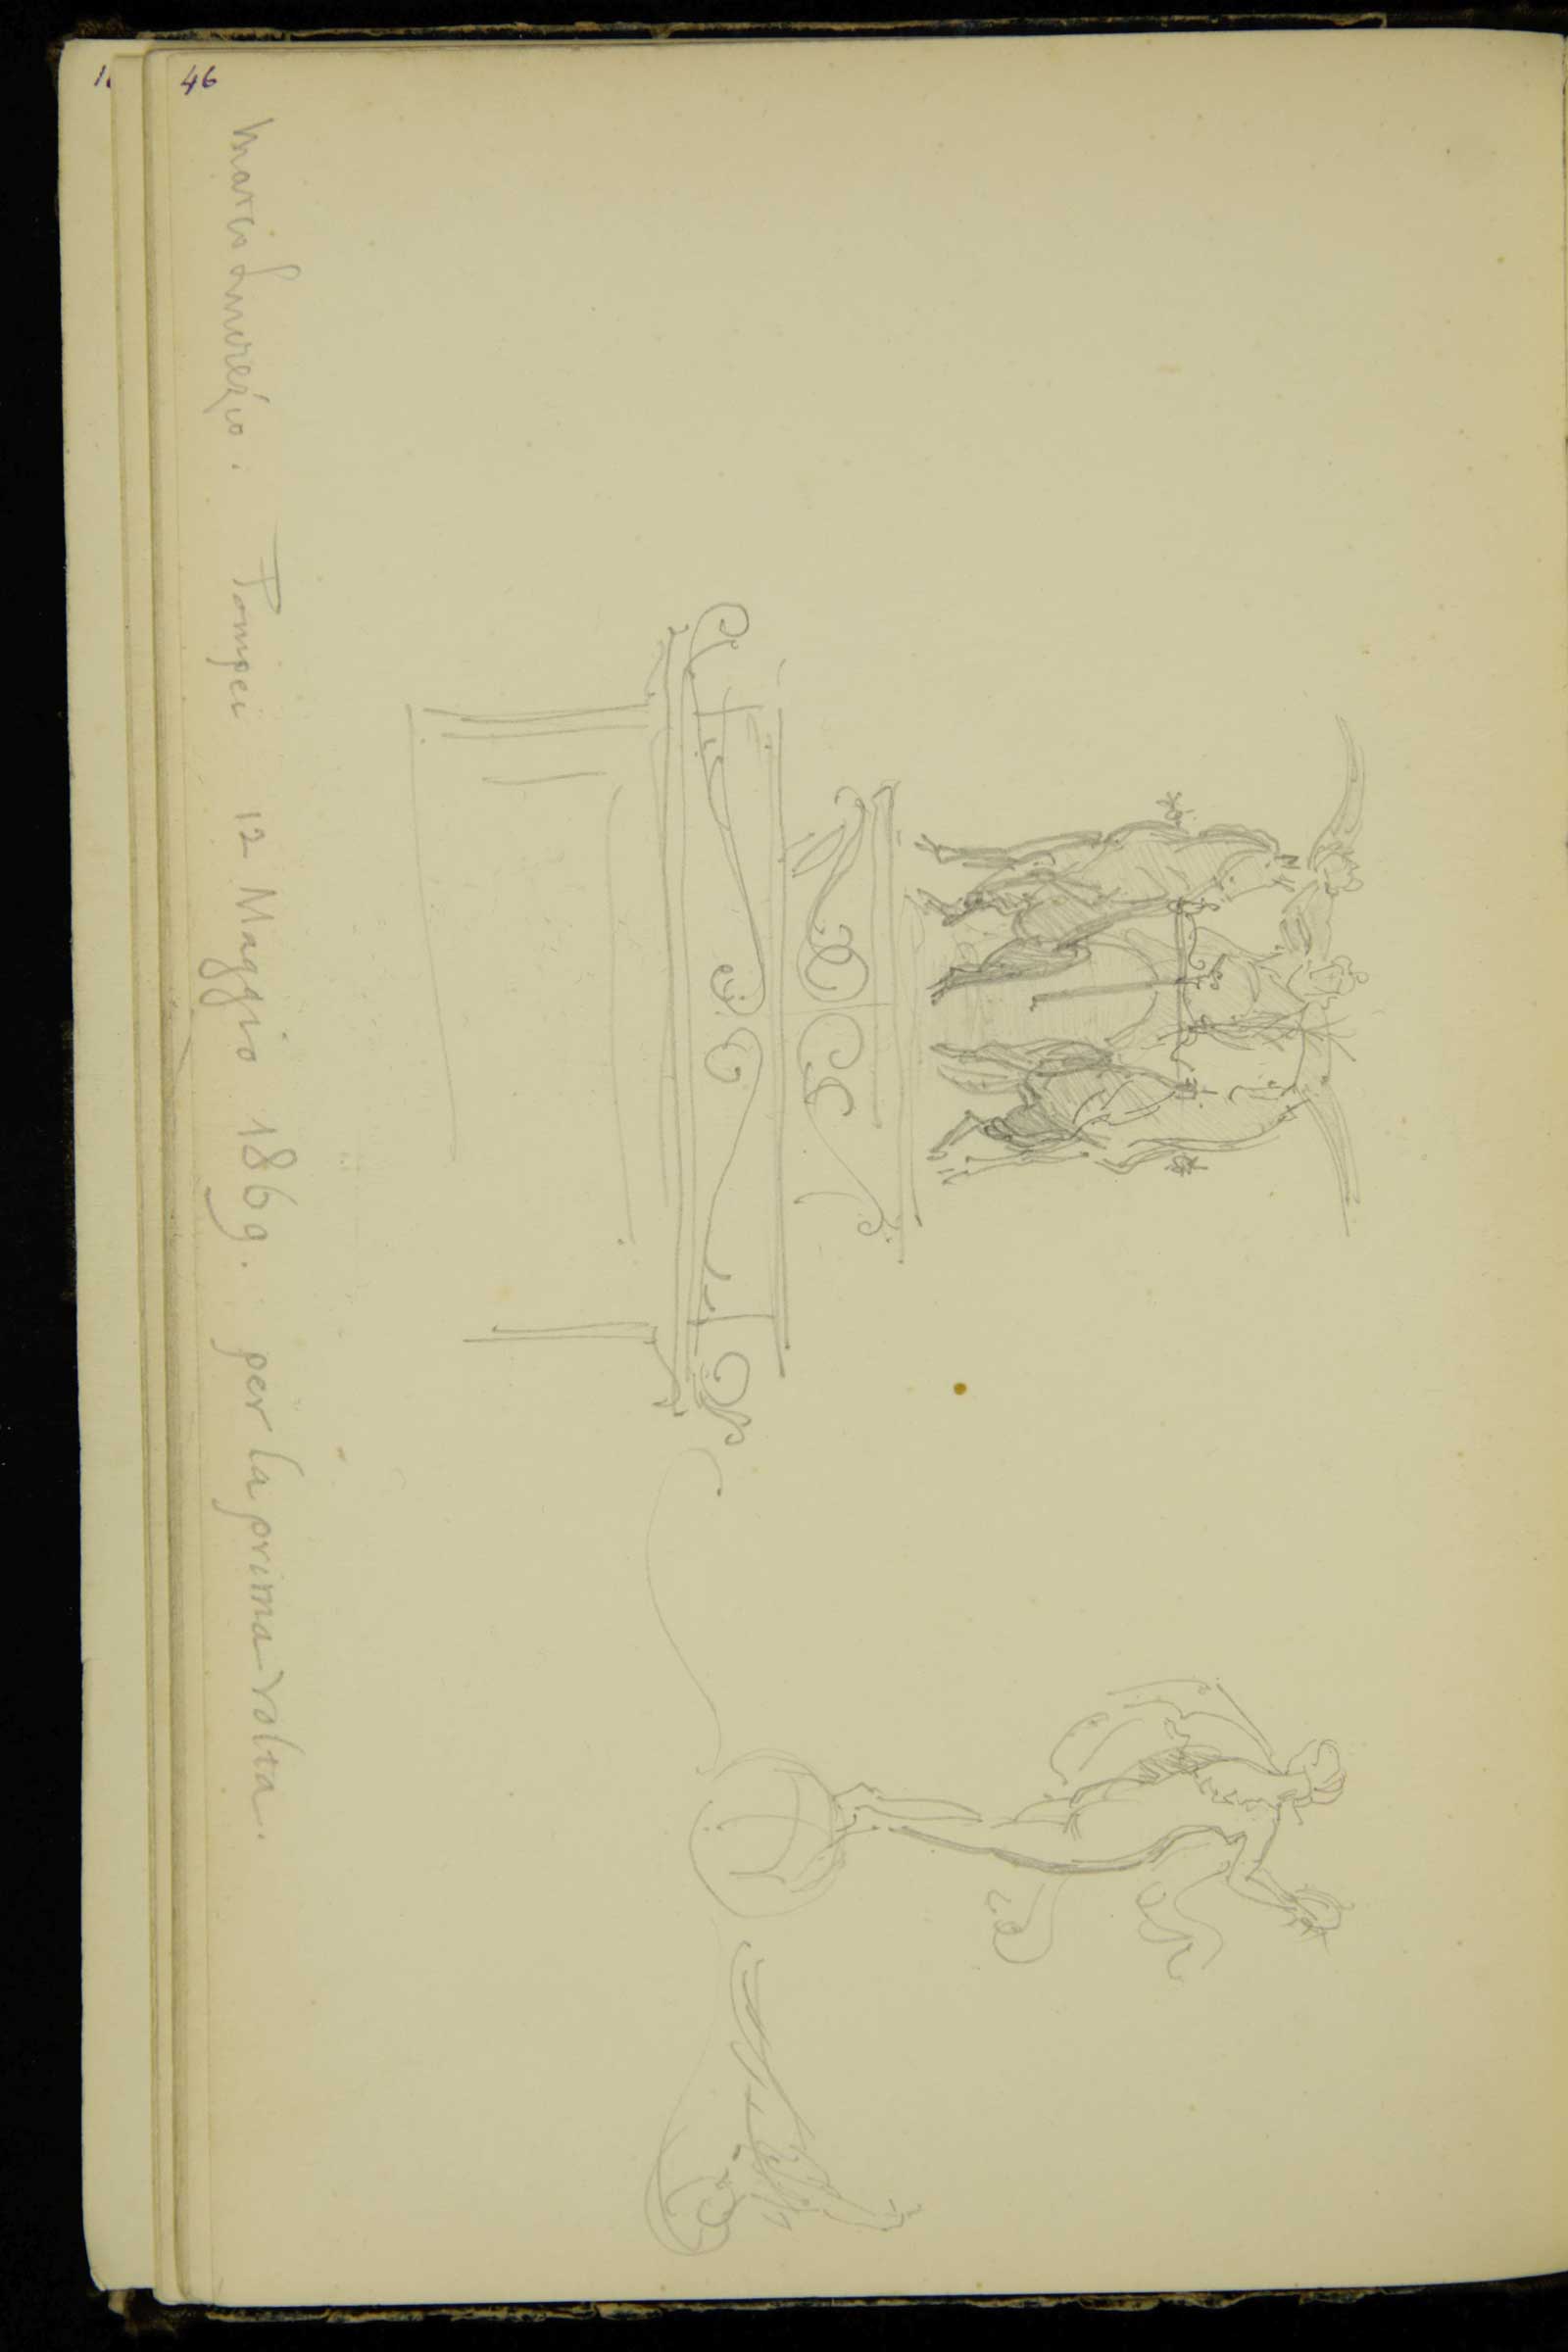 46
Marco Lucrezio. Pompei 12 Maggio 1869. per la prima volta.